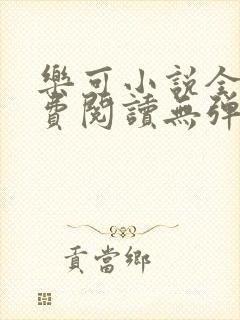 樂可小說全
費閱讀無彈
貢當鄉